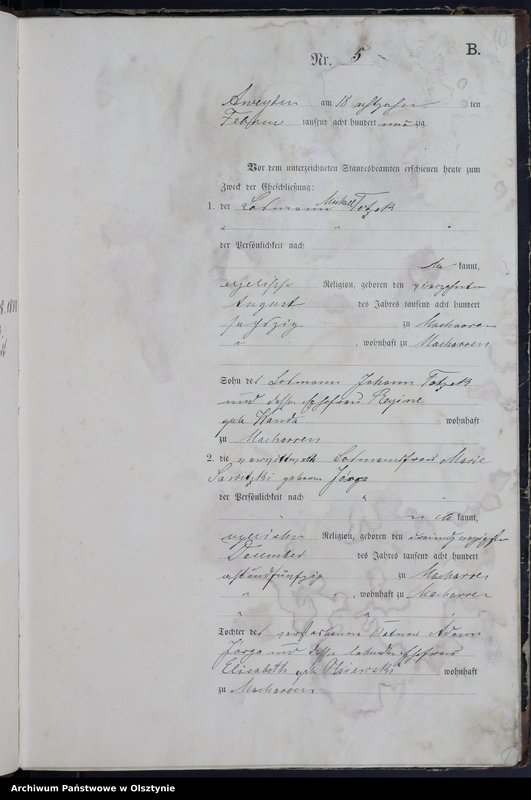 B.
Nr. 5
Aweyden am 18 achtzehn ten
Februar tausend acht hundert und zig
Vor dem unterzeichneten Standesbeamten erschienen heute zum
Zweck der Eheschließung:
1. der Losmann Michael Totzek
der Persönlichkeit nach
kannt,
Religion, geboren den vierzehnten
August des Jahres tausend acht hundert
sechszig zu Macharren
, wohnhaft zu Macharren
Sohn des Losmann Johann Totzek
und dessen Ehefrau Regine
geb Kanda wohnhaft
zu Macharren
2. die verwittwete Losmannsfrau Marie
geborene Jorga
der Persönlichkeit nach
kannt,
Religion, geboren den
December des Jahres tausend acht hundert
achtundfünfzig zu Macharren
, wohnhaft zu Macharren
Tochter des verstorbenen Adam
Jorga und dessen lebenden Ehefrau
Elisabeth geb Olsiewski wohnhaft
zu Macharren
Archiwum Państwowe w Olsztynie